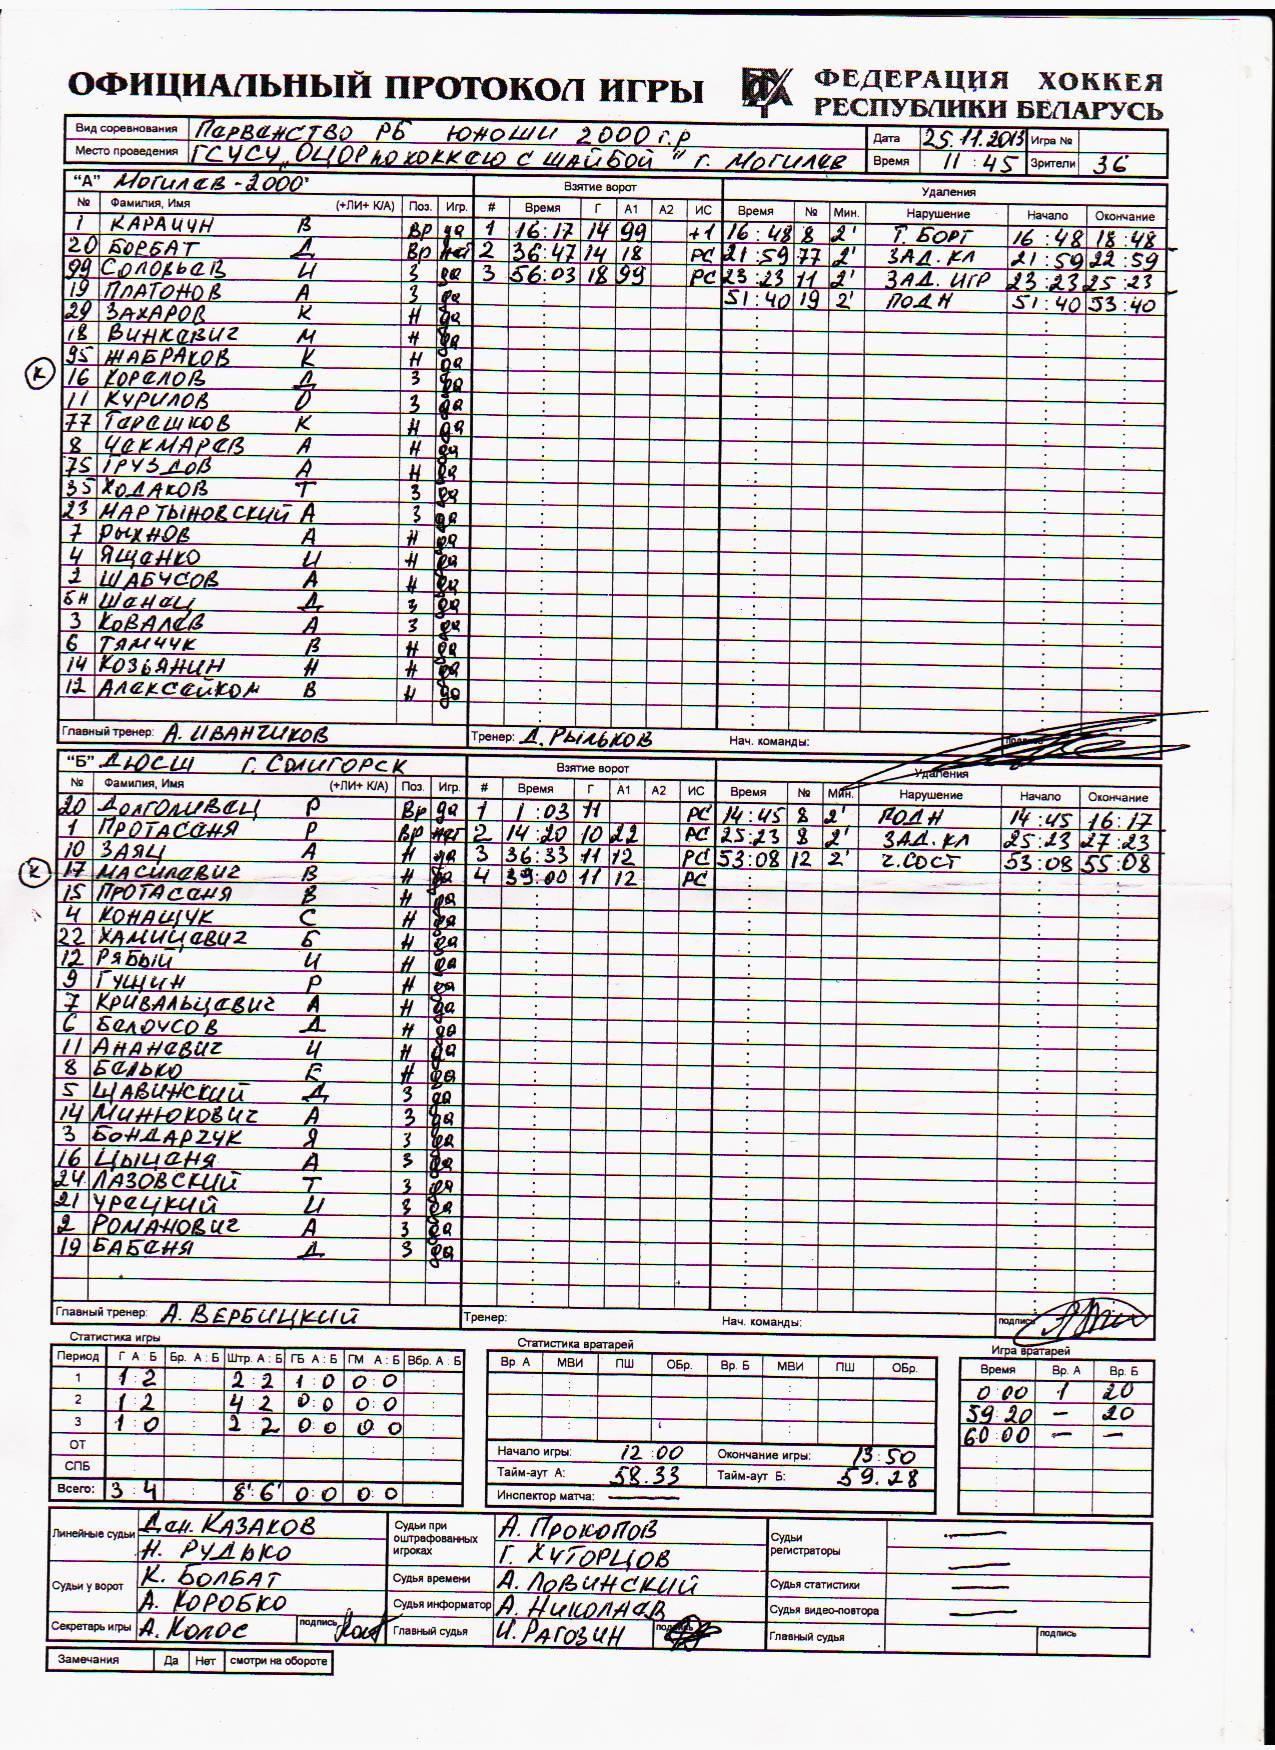 ОФИЦИАЛЬНЫЙ ПРОТОКОЛ ИГРЫ
ФЕДЕРАЦИЯ ХОККЕЯ
РЕСПУБЛИКИ БЕЛАРУСЬ
Вид соревнования Парванство РБ юноши 2000 г.р Дата 25.11.2013 Игра №
Место проведения ГСУСУ "ОЦОР по хоккею с шайбой" г. Могилав Время 11:45 Зрители 36
"А" Могилав-2000" Взятие ворот Удаления
№ Фамилия, Имя (+ЛИ+ К/А) Поз. Игр. # Время Г А1 А2 ИС Время № Мин. Нарушение Начало Окончание
1 КАРАИЧН В Вр да 1 16:17 14 99 +1 16:48 8 2' Т. БОРТ 16:48 18:48
20 БОРБАТ Д Вр нат 2 36:47 14 18 РС 21:59 77 2' ЗАД. КЛ 21:59 22:59
99 СОЛОВЬАВ И З да 3 56:03 18 99 РС 23:23 11 2' ЗАД. ИГР 23:23 25:23
19 ПЛАТОНОВ А З да 51:40 19 2' ПОДН 51:40 53:40
29 ЗАХАРОВ К Н да
18 ВИНКАВИЧ М Н да
95 ЖАБРАКОВ К Н да
К 16 КОРАЛОВ Д З да
11 КУРИЛОВ О З да
77 ТАРАШКОВ К Н да
8 ЧАКМАРАВ А Н да
75 ГРУЗДОВ А Н да
35 ХОДАКОВ Т З да
23 МАРТЫНОВСКИЙ А З да
7 РЫХНОВ А Н да
4 ЯЩАНКО И Н да
2 ШАБУСОВ А Н да
БН ШАНАЦ Д З да
3 КОВАЛАВ А З да
6 ТЯМЧУК В Н да
14 КОЗЬЯНИН Н Н да
12 АЛАКСАЙКОМ В Н да
Главный тренер: А. ИВАНЧИКОВ Тренер: Д. РЫЛЬКОВ Нач. команды: подпись
"Б" ДЮСШ г. СОЛИГОРСК Взятие ворот Удаления
№ Фамилия, Имя (+ЛИ+ К/А) Поз. Игр. # Время Г А1 А2 ИС Время № Мин. Нарушение Начало Окончание
20 ДОЛГОЛИВАЦ Р Вр да 1 1:03 11 РС 14:45 8 2' ПОДН 14:45 16:17
1 ПРОТАСАНЯ Р Вр нат 2 14:20 10 22 РС 25:23 8 2' ЗАД. КЛ 25:23 27:23
10 ЗАЯЦ А Н да 3 36:33 11 12 РС 53:08 12 2' Ч. СОСТ 53:08 55:08
К 17 МАСИЛАВИЧ В Н да 4 39:00 11 12 РС
15 ПРОТАСАНЯ В Н да
4 КОНАЩУК С Н да
22 ХАМИЦАВИЧ Б Н да
12 РЯБЫЙ И Н да
9 ГУЩИН Р Н да
7 КРИВАЛЬЦАВИЧ А Н да
6 БАЛОУСОВ Д Н да
11 АНАНАВИЧ И Н да
8 БАЛЬКО Е Н да
5 ЩАВИНСКИЙ Д З да
14 МИНЮКОВИЧ А З да
3 БОНДАРЧУК Я З да
16 ЦЫЦАНЯ А З да
24 ЛАЗОВСКИЙ Т З да
21 УРАЦКИЙ И З да
2 РОМАНОВИЧ А З да
19 БАБАНЯ Д З да
Главный тренер: А. ВЕРБИЦКИЙ Тренер: Нач. команды: подпись
Статистика игры Статистика вратарей Игра вратарей
Период Г А:Б Бр. А:Б Штр. А:Б ГБ А:Б ГМ А:Б Вбр. А:Б Вр. А МВИ ПШ ОБр. Вр. Б МВИ ПШ ОБр. Время Вр. А Вр. Б
1 1:2 2:2 1:0 0:0 0:00 1 20
2 1:2 4:2 0:0 0:0 59:20 — 20
3 1:0 2:2 0:0 0:0 60:00 — —
ОТ Начало игры: 12:00 Окончание игры: 13:50
СПБ Тайм-аут А: 58.33 Тайм-аут Б: 59.28
Всего: 3:4 8':6' 0:0 0:0 Инспектор матча: —
Линейные судьи Дан. КАЗАКОВ Судьи при оштрафованных игроках А. ПРОКОПОВ Судьи регистраторы —
Н. РУДЬКО Г. ХУТОРЦОВ —
Судьи у ворот К. БОЛБАТ Судья времени А. ЛОВИНСКИЙ Судья статистики —
А. КОРОБКО Судья информатор А. НИКОЛАЕВ Судья видео-повтора —
Секретарь игры А. КОЛОС подпись Главный судья И. РАГОЗИН подпись Главный судья подпись
Замечания Да Нет смотри на обороте